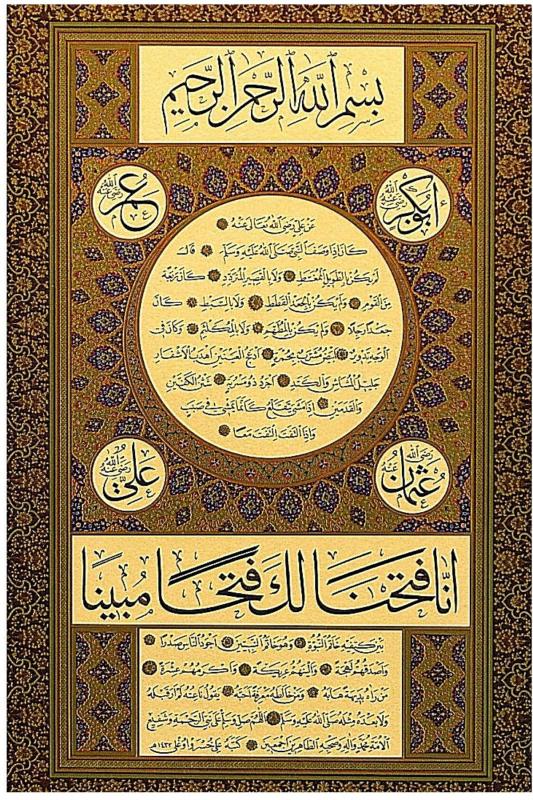 بِسْمِ ٱللهِ ٱلرَّحْمٰنِ ٱلرَّحِيمِ
أبوبكر رضي الله عنه
عمر رضي الله عنه
عن علي رضي الله تعالى عنه
كان اذا وصف النبي صلى الله عليه وسلم قال
لم يكن بالطويل الممغط ولا بالقصير المتردد كان ربعة
من القوم ولم يكن بالجعد القطط ولا بالسبط كان
جعدا رجلا ولم يكن بالمطهم ولا بالمكلثم وكان في
الوجه تدوير ابيض مشرب بحمرة ادعج العينين اهدب الاشفار
جليل المشاش والكتد اجرد ذو مسربة شثن الكفين
والقدمين اذا مشى تقلع كأنما يمشي في صبب
واذا التفت التفت معا
عثمان رضي الله عنه
علي رضي الله عنه
انا فتحنا لك فتحا مبينا
بين كتفيه خاتم النبوة وهو خاتم النبيين اجود الناس صدرا
واصدقهم لهجة والينهم عريكة واكرمهم عشرة
من رآه بديهة هابه ومن خالطه معرفة احبه يقول ناعته لم ار قبله
ولا بعده مثله صلى الله عليه وسلم اللهم صل وسلم على نبي الرحمة وشفيع
الامة محمد وآله وصحبه الطاهرين اجمعين كتبه علي